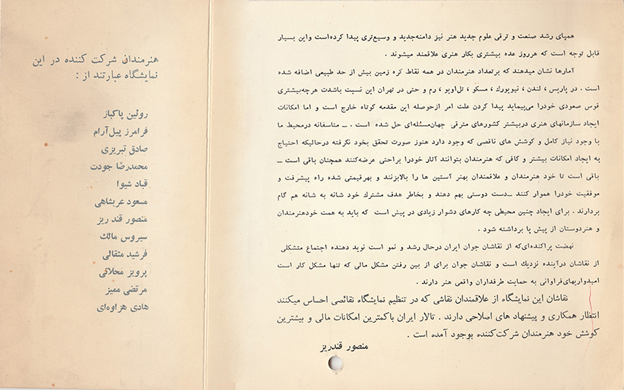 همپای رشد صنعت و ترقی علوم جدید هنر نیز دامنه‌جدید و وسیع‌تری پیدا کرده‌است واین بسیار
قابل توجه است که هرروز عده بیشتری بکار هنری علاقمند میشوند .
آمارها نشان میدهند که برتعداد هنرمندان در همه نقاط کره زمین بیش از حد طبیعی اضافه شده
است . در پاریس ، لندن ، نیویورک ، مسکو ، تل‌آویو ، رم و حتی در تهران این نسبت باشدت هرچه‌بیشتری
قوس صعودی خودرا می‌پیماید پیدا کردن علت امر ازحوصله این مقدمه کوتاه خارج است و اما امکانات
ایجاد سازمانهای هنری دربیشتر کشورهای مترقی جهان‌مسئله‌ای حل شده است . ــ متاسفانه درمحیط ما
با وجود نیاز کامل و کوشش های ناقصی که وجود دارد هنوز صورت تحقق بخود نگرفته درحالیکه احتیاج
به ایجاد امکانات بیشتر و کافی که هنرمندان بتوانند آثار خودرا براحتی عرضه‌کنند همچنان باقی است ــ
باقی است تا خود هنرمندان و علاقمندان بهنر آستین ها را بالابزنند و بهرقیمتی شده راه پیشرفت و
موفقیت خودرا هموار کنند ــ‌دست دوستی بهم دهند و بخاطر هدف مشترك خود شانه به شانه هم گام
بردارند . برای ایجاد چنین محیطی چه کارهای دشوار زیادی در پیش است که باید به همت خودهنرمندان
و هنردوستان از پیش پا برداشته شود .
نهضت پراکنده‌ای‌که از نقاشان جوان ایران درحال رشد و نمو است نوید دهنده اجتماع متشکلی
از نقاشان درآینده نزدیك است و نقاشان جوان برای از بین رفتن مشکل مالی که تنها مشکل کار است
امیدواریهای‌فراوانی به حمایت طرفداران واقعی هنر دارند .
نقاشان این نمایشگاه از علاقمندان نقاشی که در تنظیم نمایشگاه نقائصی احساس میکنند
انتظار همکاری و پیشنهاد های اصلاحی دارند . تالار ایران باکمترین امکانات مالی و بیشترین
کوشش خود هنرمندان شرکت‌کننده بوجود آمده است .
منصور قندریز
هنرمندانی شرکت کننده در این
نمایشگاه عبارتند از :
روئین پاکباز
فرامرز پیل‌آرام
صادق تبریزی
محمدرضا جودت
قباد شیوا
مسعود عربشاهی
منصور قند ریز
سیروس مالك
فرشید مثقالی
پرویز محلاتی
مرتضی ممیز
هادی هزاوه‌ای